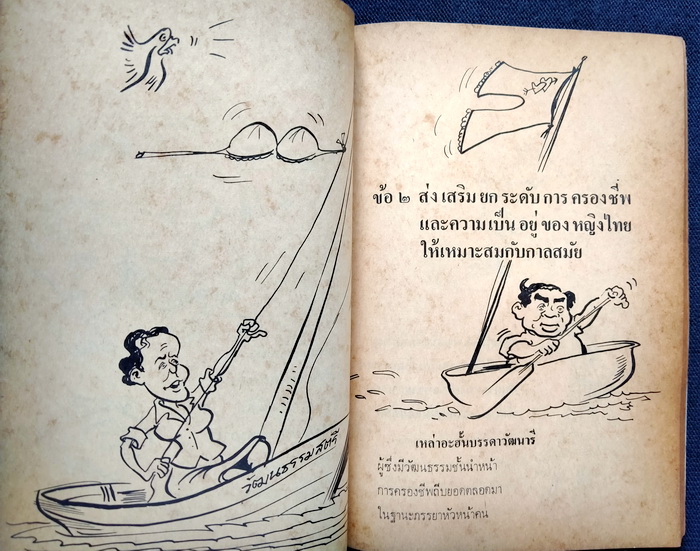 วัฒนธรรมสตรี
ข้อ ๒ ส่งเสริมยกระดับการครองชีพ
และความเป็นอยู่ของหญิงไทย
ให้เหมาะสมกับกาลสมัย
เหล่าอะฮั้นบรรดาวัฒนารี
ผู้ซึ่งมีวัฒนธรรมชั้นนำหน้า
การครองชีพถีบยอดตลอดมา
ในฐานะภรรยาหัวหน้าคน